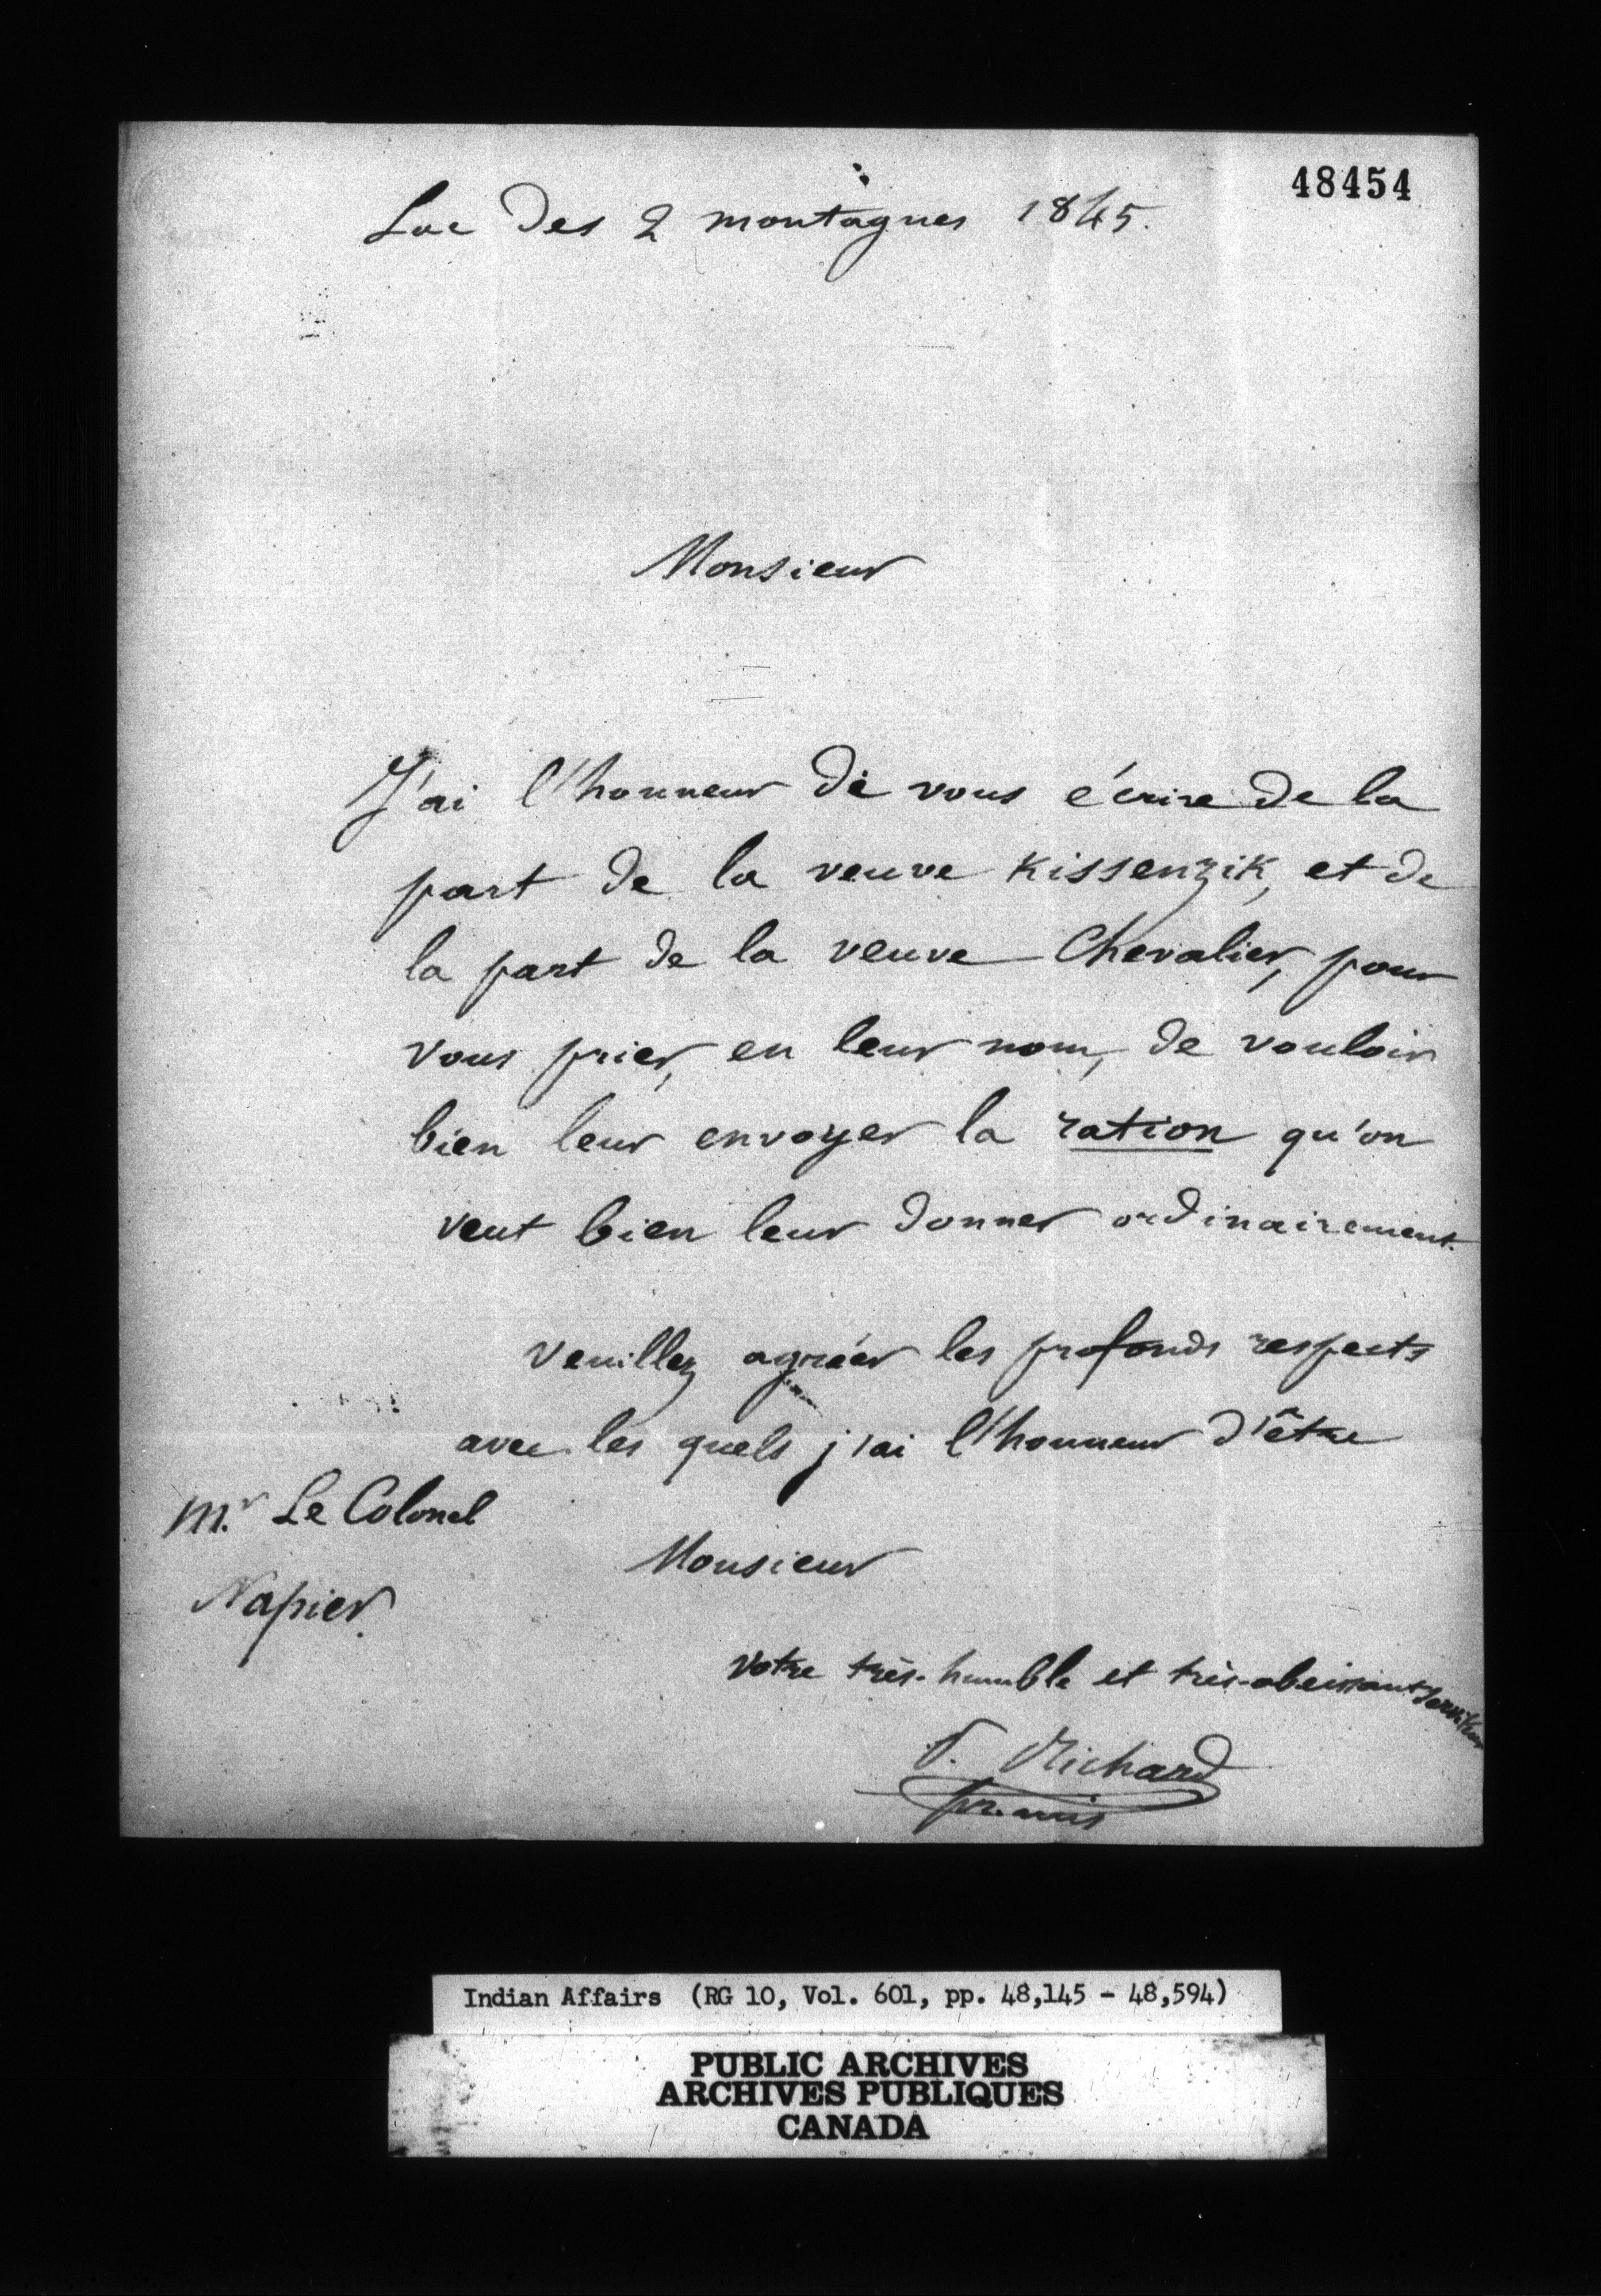 48454
Lac des 2 montagnes 1845.
Monsieur
J'ai l'honneur de vous écrire de la
part de la veuve Kissenzik, et de
la part de la veuve Chevalier, pour
vous prier, en leur nom, de vouloir
bien leur envoyer la ration qu'on
veut bien leur donner ordinairement.
veuillez agréer les profonds respects
avec les quels j'ai l'honneur d'être
Mr Le Colonel
Napier.
Monsieur
Votre très-humble et très-obeissant serviteur
Richard
Indian Affairs (RG 10, Vol. 601, pp. 48,145 - 48,594)
PUBLIC ARCHIVES
ARCHIVES PUBLIQUES
CANADA